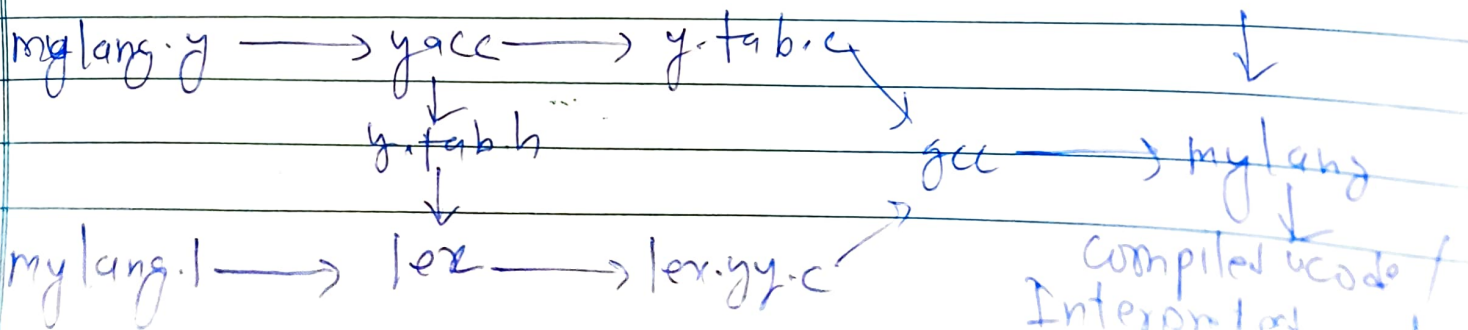 mylang.y → yacc → y.tab.c
y.tab.h
gcc → mylang
mylang.l → lex → lex.yy.c
compiled code /